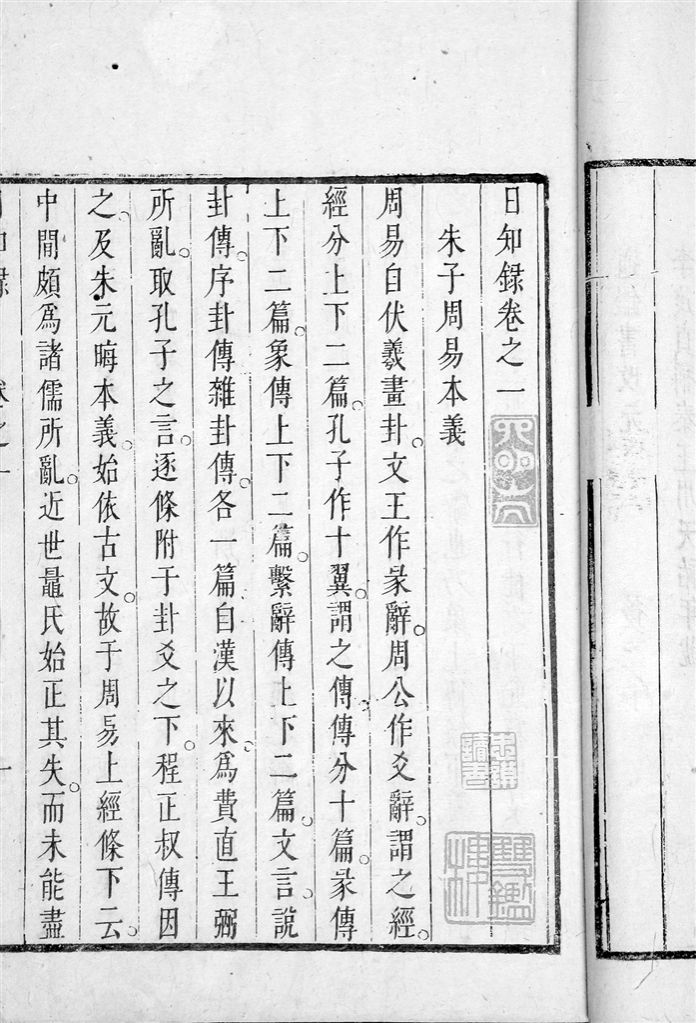 日知録卷之一
朱子周易本義
周易自伏羲畫卦文王作彖辭周公作爻辭謂之經
經分上下二篇孔子作十翼謂之傳傳分十篇彖傳
上下二篇象傳上下二篇繫辭傳上下二篇文言說
卦傳序卦傳雜卦傳各一篇自漢以來為費直王弼
所亂取孔子之言逐條附于卦爻之下程正叔傳因
之及朱元晦本義始依古文故于周易上經條下云
中間頗為諸儒所亂近世鼂氏始正其失而未能盡